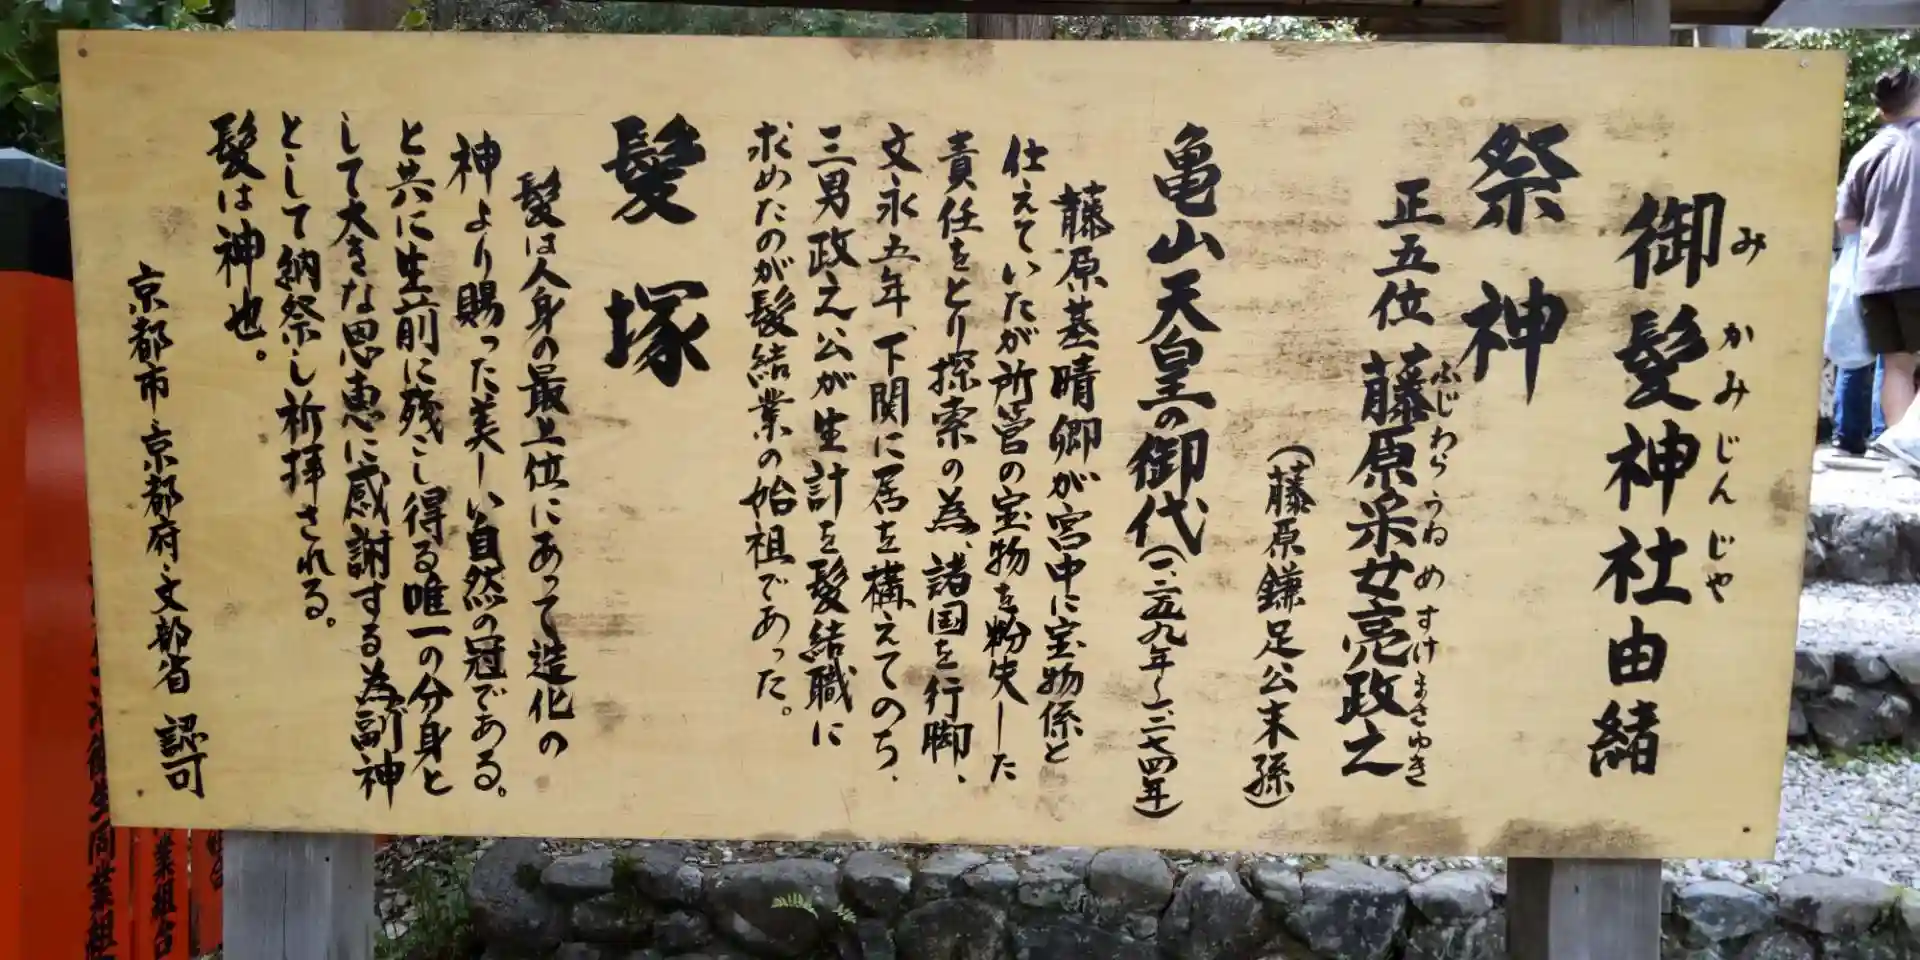 御髪神社由緒
みかみじんじゃ
祭神
正五位 藤原采女亮政之
ふじわらうねめすけまさゆき
(藤原鎌足公末孫)
亀山天皇の御代(一、二五九年〜一、二七四年)
藤原基晴卿が宮中に宝物係と
仕えていたが所管の宝物を粉失した
責任をとり探索の為、諸国を行脚、
文永五年、下関に居を構えてのち、
三男政之公が生計を髪結職に
求めたのが髪結業の始祖であった。
髪塚
髪は人身の最上位にあって造化の
神より賜った美しい自然の冠である。
と共に生前に残こし得る唯一の分身と
して大きな恩恵に感謝する為副神
として納祭し祈拝される。
髪は神也。
京都市・京都府・文部省 認可
業組合